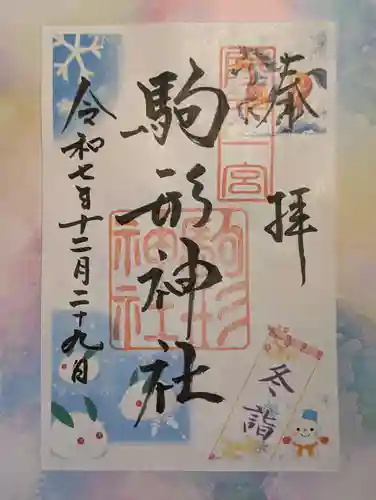 奉拝
駒形神社
令和七年十二月二十九日
冬詣
駒形神社
一宮